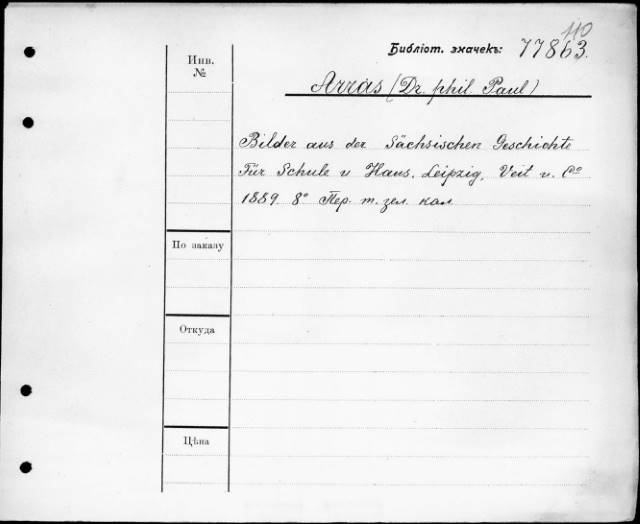 110
Библіот. значекъ: 77863.
Инв.
№
Arras (Dr. phil. Paul)
Bilder aus der Sächsischen Geschichte
Für Schule u Haus. Leipzig, Veit u. Co
1889. 8° Пер. т. зел. кал.
По заказу
Откуда
Цѣна